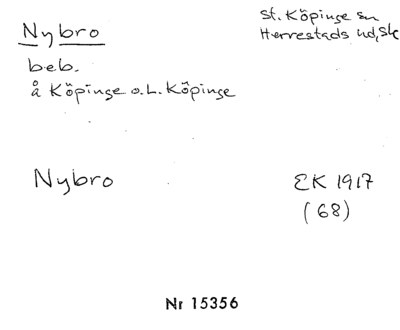 Nybro
St. Köpinge sn
Herrestads hd, Sk
beb.
å Köpinge o. L. Köpinge
Nybro
EK 1917
(68)
Nr 15356